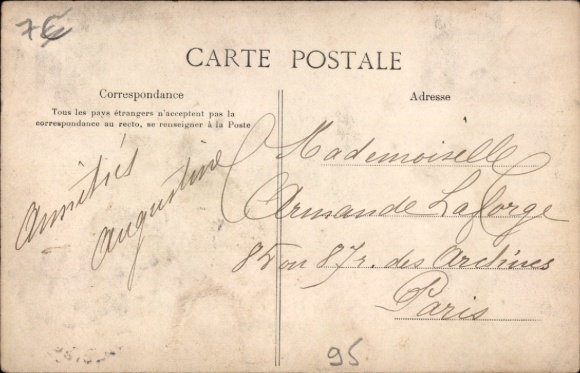 7€
CARTE POSTALE
Correspondance
Tous les pays étrangers n'acceptent pas la
correspondance au recto, se renseigner à la Poste
Amitiés
Augustine
Adresse
Mademoiselle
Armande Laforge
85 ou 87 r. des Archives
Paris
95